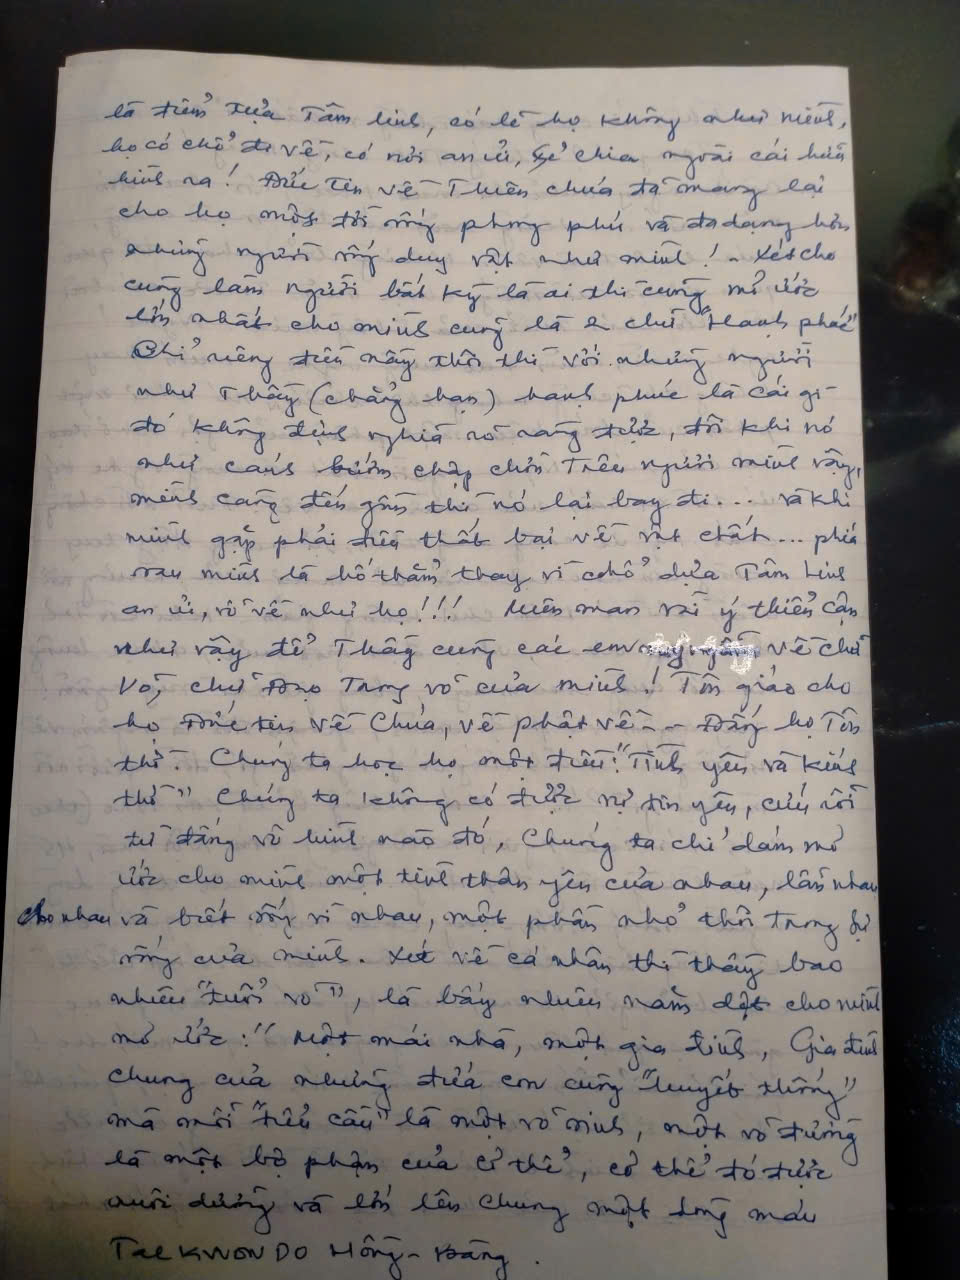 là điểm tựa Tâm linh, có lẽ họ không như mình,
họ có chỗ đi về, có nơi an ủi, sẻ chia ngoài cái hữu
hình ra! Đức tin về Thiên chúa đã mang lại
cho họ một đời sống phong phú và đa dạng hơn
những người sống duy vật như mình! - Xét cho
cùng làm người bất kỳ là ai thì cũng mơ ước
lớn nhất cho mình cũng là 2 chữ "Hạnh phúc"
Chỉ riêng điều này thôi thì với những người
như Thầy (chẳng hạn) hạnh phúc là cái gì
đó không định nghĩa rõ ràng được, đôi khi nó
như cánh bướm chập chờn Trên người mình vậy,
mình càng đến gần thì nó lại bay đi... và khi
mình gặp phải điều thất bại về vật chất... phía
sau mình là hố thẳm thay vì chổ dựa Tâm Linh
an ủi, vỗ về như họ!!! Miên man vài ý thiển cận
như vậy để Thầy cùng các em suy ngẫm về chữ
Võ, chữ Đạo Trong võ của mình! Tôn giáo cho
họ Đức tin về Chúa, về phật về - - Đấng họ Tôn
thờ. Chúng ta học họ một điều: "Tình yêu và kính
thờ" Chúng ta không có được sự tin yêu, cứu rỗi
từ đấng vô hình nào đó, Chúng ta chỉ dám mơ
ước cho mình một tình thân yêu của nhau, lẫn nhau
cho nhau và biết sống vì nhau, một phần nhỏ thôi trong sự
sống của mình. Xét về cá nhân thì thầy bao
nhiêu "tuổi võ", là bấy nhiêu năm đặt cho mình
mơ ước: "Một mái nhà, một gia đình, Gia đình
chung của những đứa con cùng "huyết thống"
mà mỗi "tiểu cầu" là một võ sinh, một võ đường
là một bộ phận của cơ thể, cơ thể đó được
nuôi dưỡng và lớn lên chung một dòng máu
TaeKWONDO Hồng - Bàng.